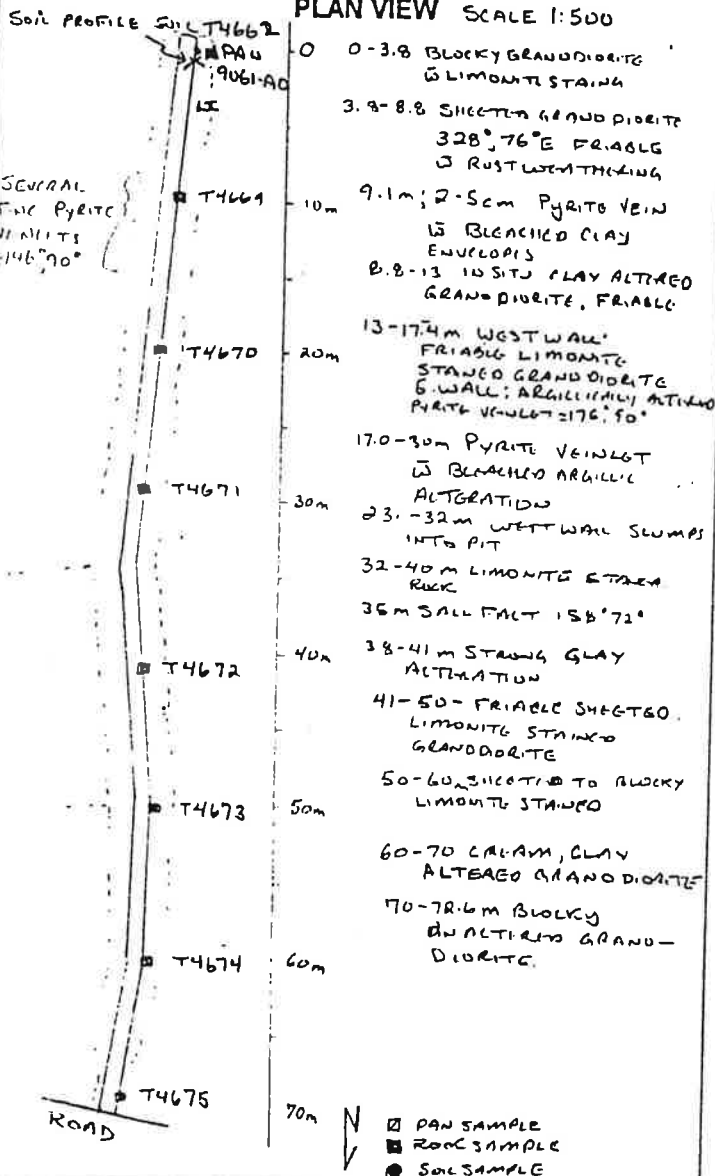 PLAN VIEW SCALE 1:500
SOIL PROFILE SOIL T4662
PAN
9061-AD
SEVERAL
PYRITE
146° 70°
T4669
T4670
T4671
T4672
T4673
T4674
T4675
ROAD
0
10m
20m
30m
40m
50m
60m
70m
0-3.8 BLOCKY GRANODIORITE
W̄ LIMONITE STAING
3.8-8.8 SHEETED GRANODIORITE
328°, 76°E FRIABLE
W̄ RUST WEATHERING
9.1m; 2-5cm PYRITE VEIN
W̄ BLEACHED CLAY
ENVELOPES
8.8-13 INSITU CLAY ALTERED
GRANODIORITE, FRIABLE
13-17.4m WEST WALL:
FRIABLE LIMONITE
STANED GRANODIORITE
E. WALL: ARGILLICALLY ALTERED
PYRITE VEINLET = 176° 50°
17.0-30m PYRITE VEINLET
W̄ BLEACHED ARGILLIC
ALTERATION
23.-32m WEST WALL SLUMPS
INTO PIT
32-40m LIMONITE
ROCK
35m 158° 72°
38-41m STRONG CLAY
ALTERATION
41-50- FRIABLE SHEETED
LIMONITE STAINED
GRANODIORITE
50-60m SHEETED TO BLOCKY
LIMONITE STAINED
60-70 CREAM, CLAY
ALTERED GRANODIORITE
70-72.6m BLOCKY
UNALTERED GRANO-
DIORITE.
N
PAN SAMPLE
ROCK SAMPLE
SOIL SAMPLE